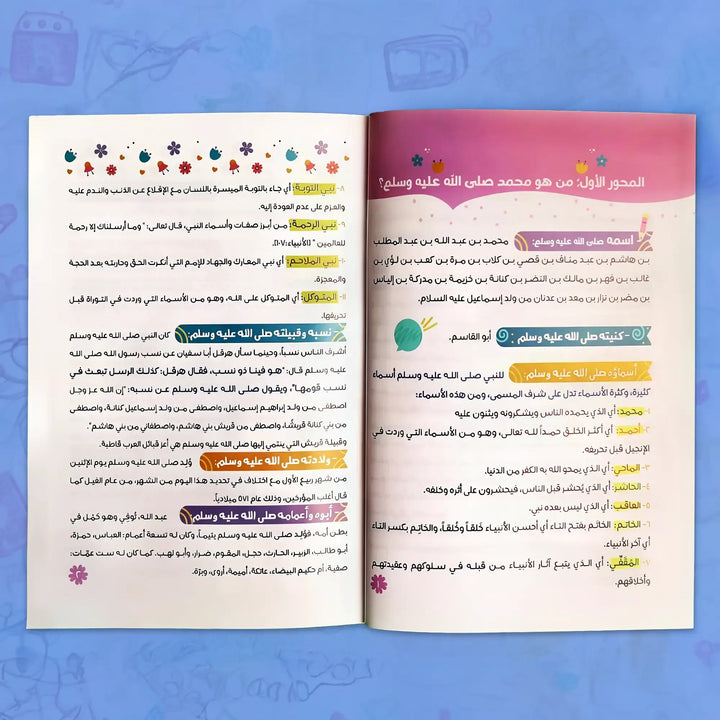 المحور الأول: من هو محمد صلى الله عليه وسلم؟
أسمه صلى الله عليه وسلم: محمد بن عبد الله بن عبد المطلب
بن هاشم بن عبد مناف بن قصي بن كلاب بن مرة بن كعب بن لؤي بن
غالب بن فهر بن مالك بن النضر بن كنانة بن خزيمة بن مدركة بن إلياس
بن مضر بن نزار بن معد بن عدنان من ولد إسماعيل عليه السلام.
-كنيته صلى الله عليه وسلم: أبو القاسم.
أسماؤه صلى الله عليه وسلم: للنبي صلى الله عليه وسلم أسماء
كثيرة، وكثرة الأسماء تدل على شرف المسمى، ومن هذه الأسماء:
١- محمد: أي الذي يحمده الناس ويشكرونه ويثنون عليه
٢- أحمد: أي أكثر الخلق حمداً لله تعالى، وهو من الأسماء التي وردت في
الإنجيل قبل تحريفه.
٣- الماحي: أي الذي يمحو الله به الكفر من الدنيا.
٤- الحاشر: أي الذي يُحشر قبل الناس، فيحشرون على أثره وخلفه.
٥- العاقب: أي الذي ليس بعده نبي.
٦- الخاتم: الخاتَم بفتح التاء أي أحسن الأنبياء خَلقاً وخُلقاً، والخاتِم بكسر التاء
أي آخر الأنبياء.
٧- المُقفّي: أي الذي يتبع آثار الأنبياء من قبله في سلوكهم وعقيدتهم
وأخلاقهم.
١
٨- نبي التوبة: أي جاء بالتوبة الميسرة باللسان مع الإقلاع عن الذنب والندم عليه
والعزم على عدم العودة إليه.
٩- نبي الرحمة: من أبرز صفات وأسماء النبي، قال تعالى: "وما أرسلناك إلا رحمة
للعالمين" [الأنبياء:١٠٧].
١٠- نبي الملاحم: أي نبي المعارك والجهاد للإمم التي أنكرت الحق وحاربته بعد الحجة
والمعجزة.
١١- المتوكل: أي المتوكل على الله، وهو من الأسماء التي وردت في التوراة قبل
تحريفها.
نسبه وقبيلته صلى الله عليه وسلم: كان النبي صلى الله عليه وسلم
أشرف الناس نسباً، وحينما سأل هرقل أبا سفيان عن نسب رسول الله صلى الله
عليه وسلم قال: "هو فينا ذو نسب، فقال هرقل: كذلك الرسل تبعث في
نسب قومها"، ويقول صلى الله عليه وسلم عن نسبه: "إن الله عز وجل
اصطفى من ولد إبراهيم إسماعيل، واصطفى من ولد إسماعيل كنانة، واصطفى
من بني كنانة قريشًا، واصطفى من قريش بني هاشم، واصطفاني من بني هاشم".
وقبيلة قريش التي ينتمي إليها صلى الله عليه وسلم هي أعز قبائل العرب قاطبة.
- ولادته صلى الله عليه وسلم: وُلِد صلى الله عليه وسلم يوم الإثنين
من شهر ربيع الأول مع اختلاف في تحديد هذا اليوم من الشهر، من عام الفيل كما
قال أغلب المؤرخين، وذلك عام ٥٧١ ميلادياً.
أبوه وأعمامه صلى الله عليه وسلم: عبد الله، تُوفي وهو حَمْل في
بطن أمه، فوُلِد صلى الله عليه وسلم يتيماً، وكان له تسعة أعمام: العباس، حمزة،
أبو طالب، الزبير، الحارث، حجل، المقوم، ضرار، وأبو لهب. كما كان له ست عمّات:
صفية، أم حكيم البيضاء، عاتكة، أميمة، أروى، وبرّة.